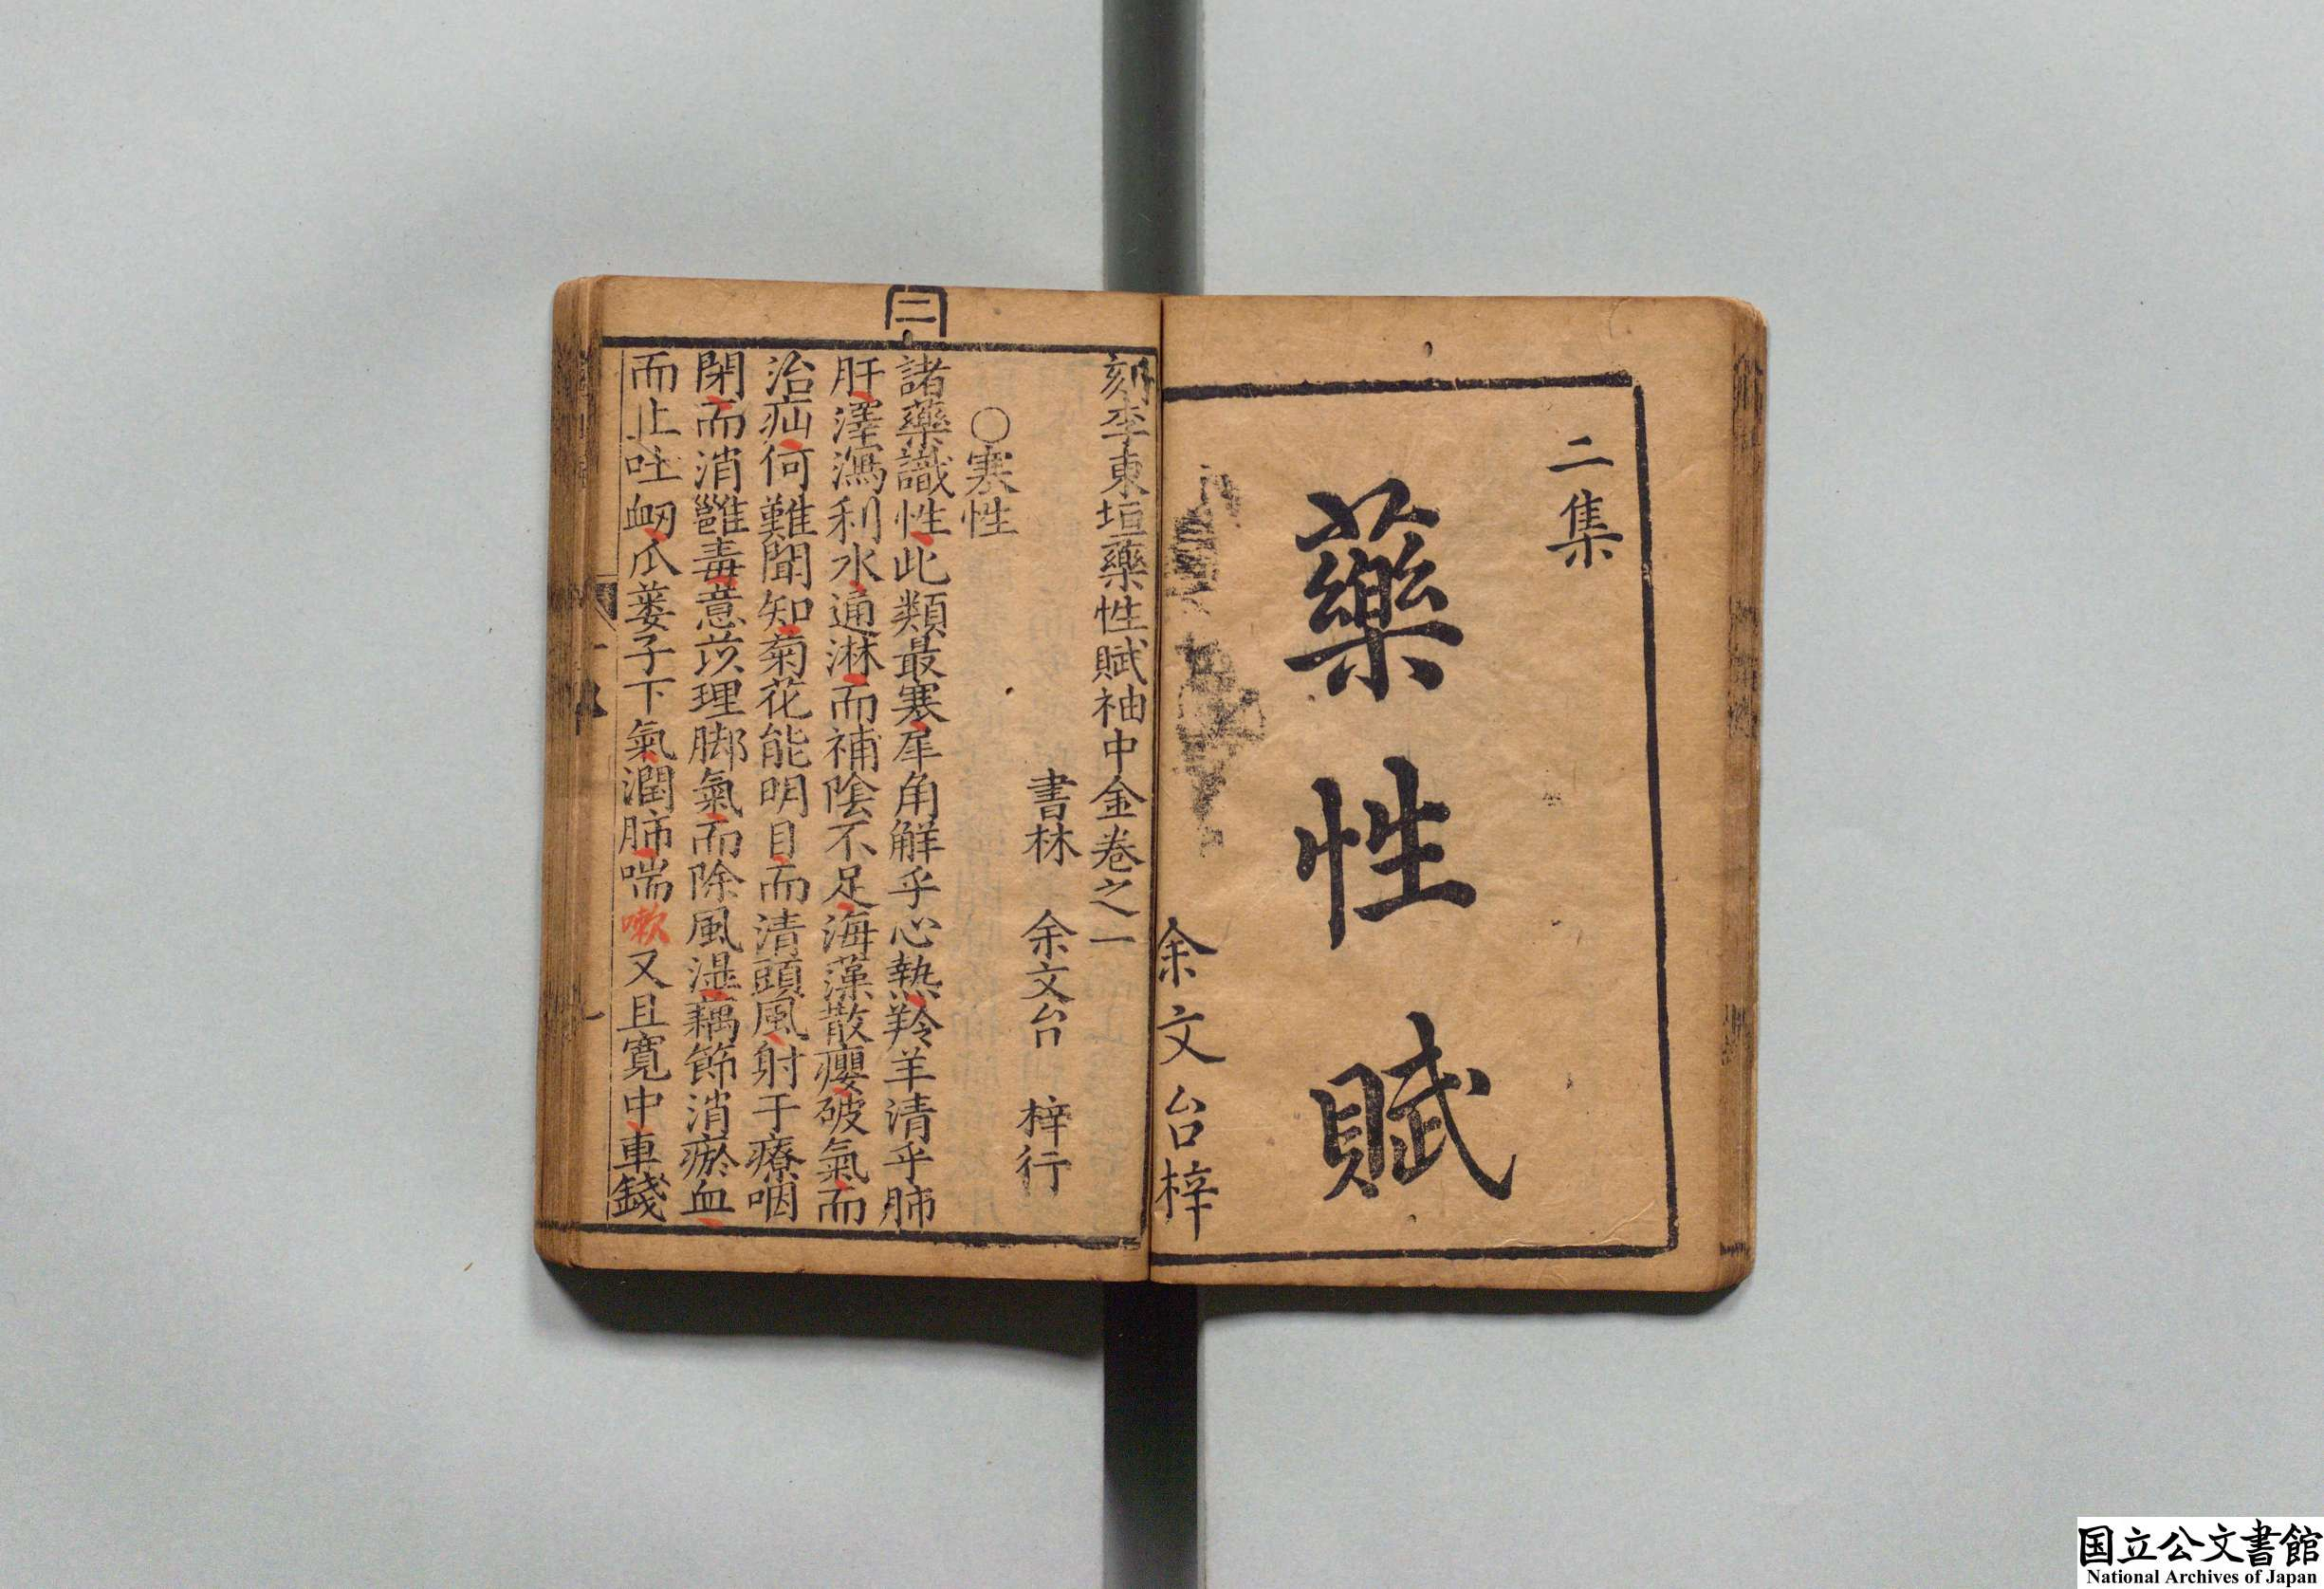 二集
藥性賦
余文台梓
二
刻李東垣藥性賦袖中金卷之一
書林 余文台 梓行
○寒性
諸藥識性此類最寒犀角觧乎心熱羚羊清乎肺
肝澤瀉利水通淋而補陰不足海藻散癭破氣而
治疝何難聞知菊花能明目而清頭風射干療咽
閉而消雝毒薏苡理脚氣而除風湿藕節消瘀血
而止吐衂瓜蒌子下氣潤肺喘嗽又且寬中車錢
国立公文書館
National Archives of Japan